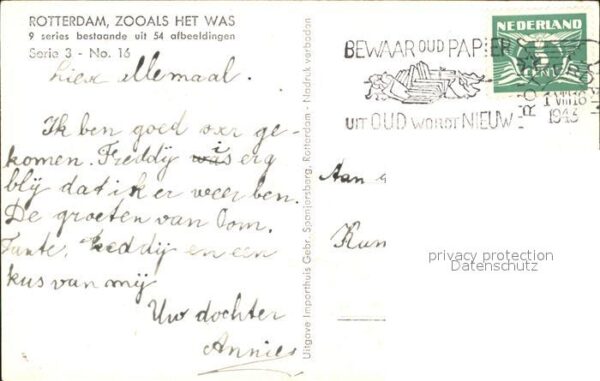 ROTTERDAM, ZOOALS HET WAS
9 series bestaande uit 54 afbeeldingen
Serie 3 - No. 16
Liex allemaal.
Ik ben goed over ge-
komen. Freddy is erg
blij dat ik er weer ben.
De groeten van Oom.
Tante, Freddij en een
kus van mij
Uw dochter
Annies
Uitgave Importhuis Gebr. Spanjersberg, Rotterdam - Nadruk verboden
BEWAAR OUD PAPIER
UIT OUD WORDT NIEUW
NEDERLAND
CENT
ROTTERDAM
1 VIII 16
1943
Aan
privacy protection
Datenschutz